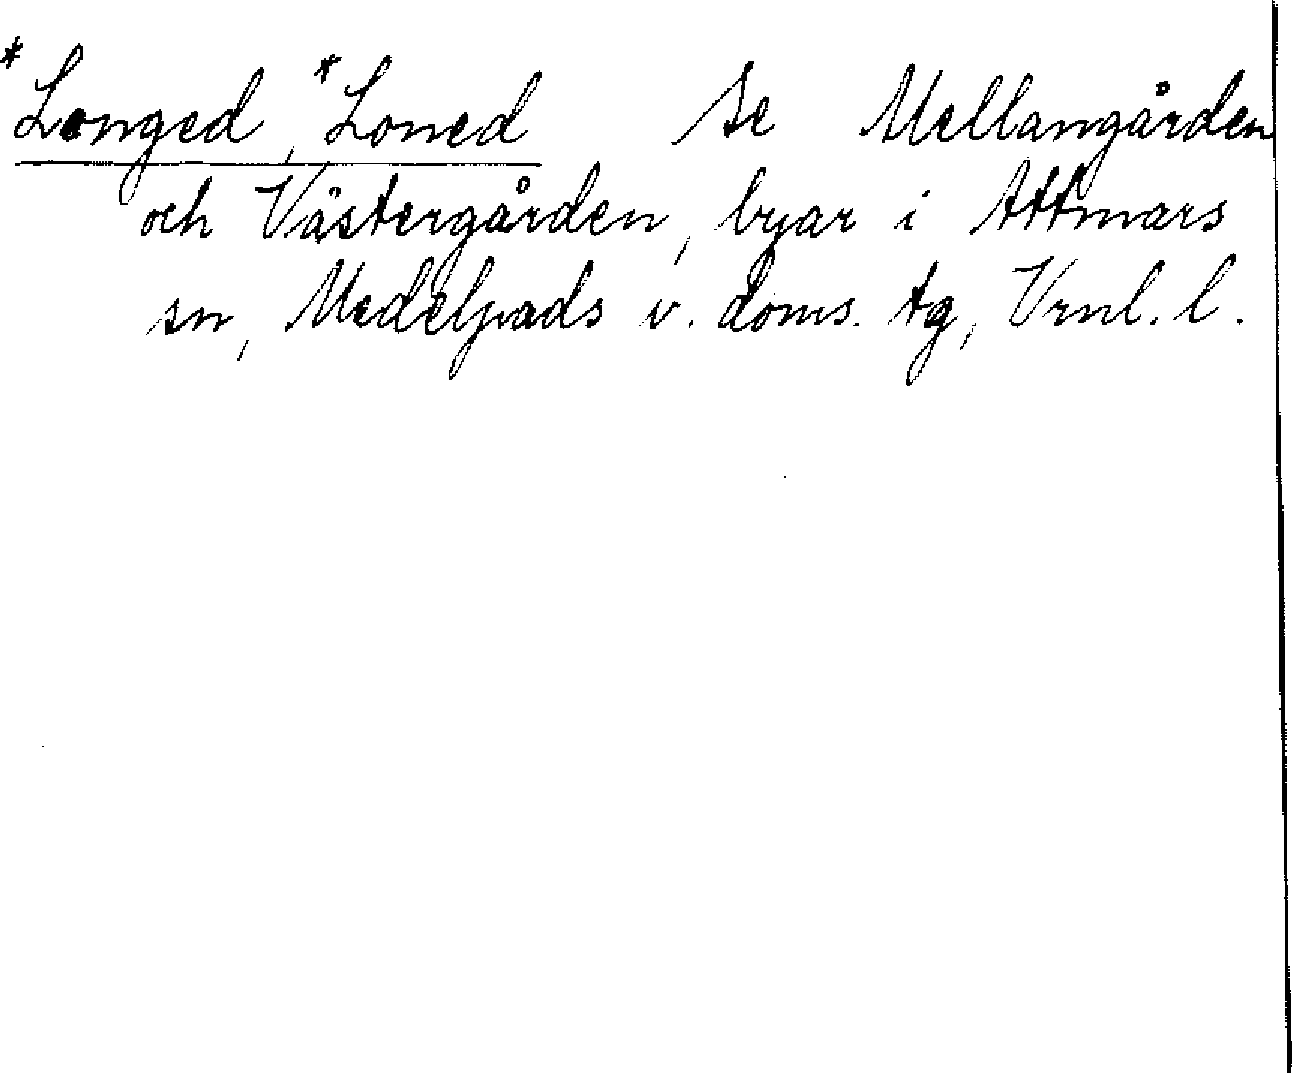 *Longed, *Loned se Mellangården
och Västergården, byar i Attmars
sn, Medelpads v. doms. tg, Vrnl. l.